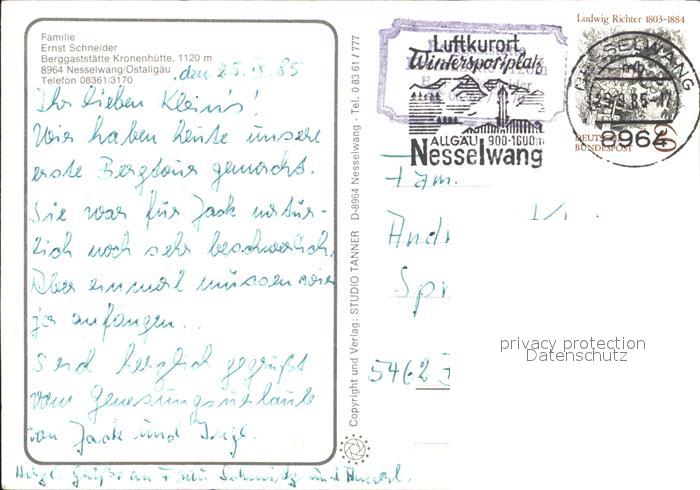 Familie
Ernst Schneider
Berggaststätte Kronenhütte, 1120 m
8964 Nesselwang/Ostallgäu
Telefon 08361/3170
den 25.IX.85
Ihr lieben Klein's!
Wir haben heute unsere
erste Bergtour gemacht.
Sie war für Jack natür-
lich noch sehr beschwerlich.
Aber einmal müssen wir
ja anfangen..
Seid herzlich gegrüßt
vom Genesungsurlaube
von Jack und
Herzl. Grüße an Frau Schmitz und
Copyright und Verlag: STUDIO TANNER D-8964 Nesselwang · Tel. 0 83 61 / 777
Luftkurort
Wintersportplatz
ALLGÄU 900-1600m
Nesselwang
Ludwig Richter 1803-1884
DEUTSCHE
BUNDESPOST
NESSELWANG
8964
Fam.
5462
privacy protection
Datenschutz